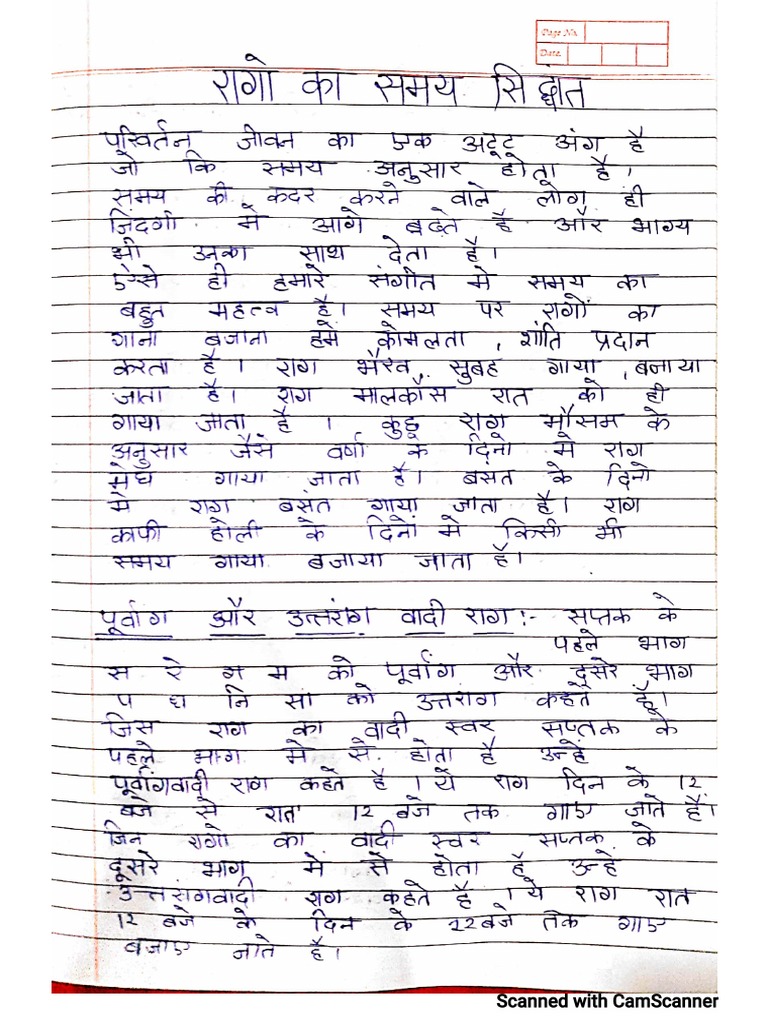 Page No.
Date.
रागो का समय सिद्धांत
परिवर्तन जीवन का एक अटूट अंग है
जो कि समय अनुसार होता है।
समय की कदर करने वाले लोग ही
जिंदगी में आगे बढ़ते है और भाग्य
भी उनका साथ देता है।
ऐसे ही हमारे संगीत मे समय का
बहुत महत्व है। समय पर रागों का
गाना बजाना हमें कोमलता, शांति प्रदान
करता है। राग भैरव, सुबह गाया, बजाया
जाता है। राग मालकौंस रात को ही
गाया जाता है। कुछ राग मौसम के
अनुसार जैसे वर्षा के दिनो मे राग
मेघ गाया जाता है। बसंत के दिनो
मे राग बसंत गाया जाता है। राग
काफी होली के दिनों मे किसी भी
समय गाया बजाया जाता है।
पूर्वांग और उत्तरांग वादी राग:- सप्तक के
पहले भाग
स रे ग म को पूर्वांग और दूसरे भाग
प ध नि सा को उत्तराग कहते है।
जिस राग का वादी स्वर सप्तक के
पहले भाग मे से होता है उन्हें
पूर्वांगवादी राग कहते है। ये राग दिन के 12
बजे से रात 12 बजे तक गाए जाते है।
जिन रागो का वादी स्वर सप्तक के
दूसरे भाग में से होता है उन्हे
उत्तरांगवादी राग कहते है। ये राग रात
12 बजे के दिन के 12 बजे तक गाए
बजाए जाते है।
Scanned with CamScanner